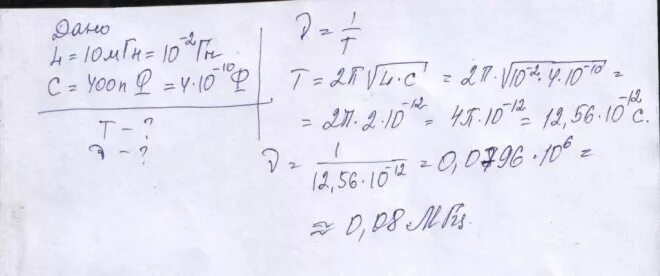 Дано
L = 10мГн = 10⁻² Гн
C = 400п Ф = 4·10⁻¹⁰ Ф
T - ?
ν - ?
ν = 1/T
T = 2π√(L·C) = 2π·√(10⁻²·4·10⁻¹⁰) =
= 2π·2·10⁻¹² = 4π·10⁻¹² = 12,56·10⁻¹² с.
ν = 1/(12,56·10⁻¹²) = 0,0796·10⁶ =
≈ 0,08 МГц.